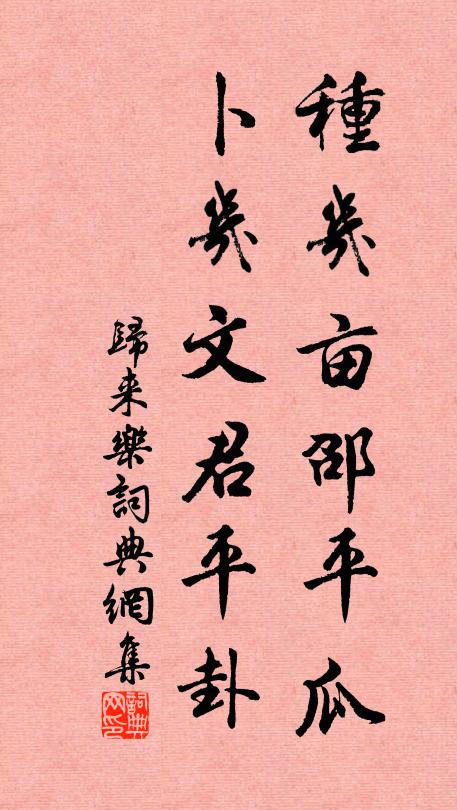 種幾亩邵平瓜
卜幾文君平卦
歸来樂詞典網集
詞典网印